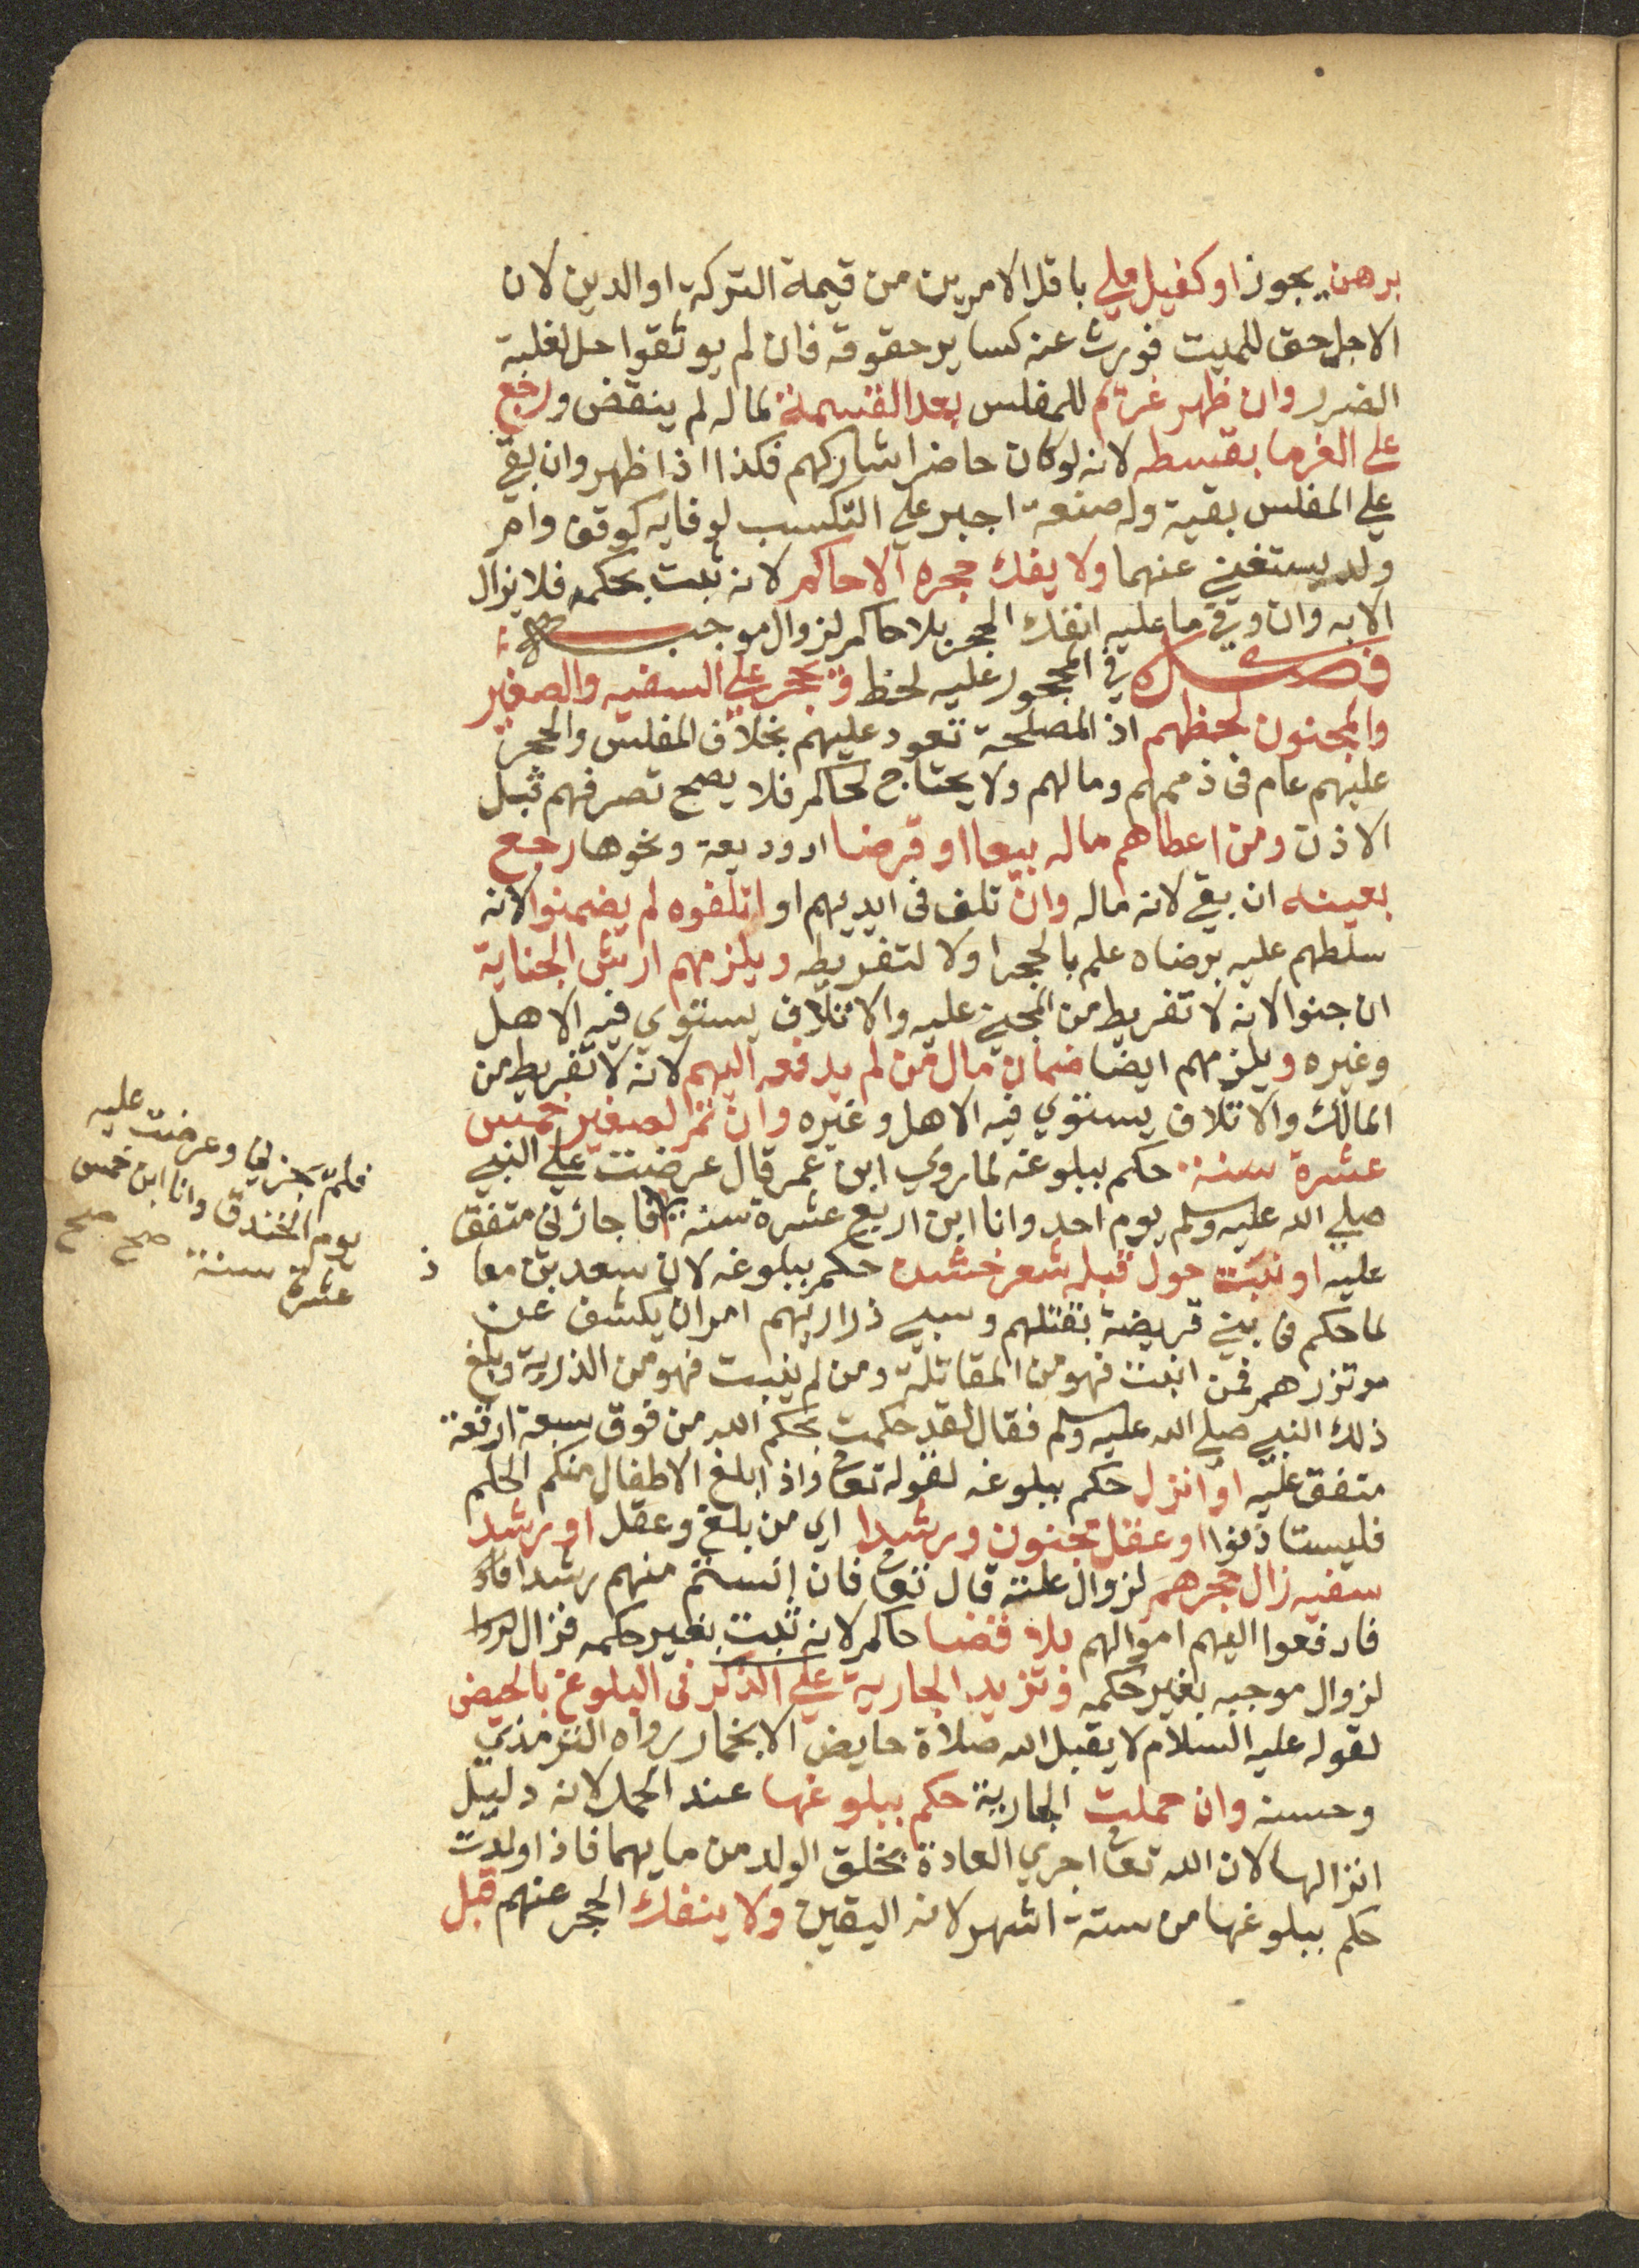 برهن يجوز او كفيل ملي باقل الامرين من قيمة التركة او الدين لان
الاجل حق للميت فورث عنه كساير حقوقه فان لم يوثقوا حل لغلبة
الضرر وان ظهر غريم للمفلس بعد القسمة لماله لم ينقض ورجع
علي الغرما بقسطه لانه لو كان حاضرا شاركهم فكذا اذا ظهر وان بقي
علي المفلس بقية وله صنعة اجبر علي التكسب لوفايه كوقف وام
ولد يستغني عنهما ولا يفك حجره الا حاكم لانه ثبت بحكمه فلا يزال
الا به وان وفي ما عليه انفك الحجر بلا حاكم لزوال موجبه
فصل في المحجور عليه لحظ ويحجر علي السفيه والصغير
والمجنون لحظهم اذ المصلحة تعود عليهم بخلاف المفلس والحجر
عليهم عام في ذممهم ومالهم ولا يحتاج لحاكم فلا يصح تصرفهم قبل
الاذن ومن اعطاهم ماله بيعا او قرضا او وديعة ونحوها رجع
بعينه ان بقي لانه ماله وان تلف في ايديهم او اتلفوه لم يضمنوا لانه
سلطهم عليه برضاه علم بالحجر اولا لتفريطه ويلزمهم ارش الجناية
ان جنوا لانه لا تفريط من المجني عليه والاتلاف يستوي فيه الاهل
وغيره ويلزمهم ايضا ضمان مال من لم يدفعه اليهم لانه لا تفريط من
المالك والاتلاف يستوي فيه الاهل وغيره وان تم لصغير خمس
عشرة سنة حكم ببلوغه لما روي ابن عمر قال عرضت علي النبي
صلي الله عليه وسلم يوم احد وانا ابن اربع عشرة سنة فاجازني متفق
عليه او نبت حول قبله شعر خشن حكم ببلوغه لان سعد بن معاذ
لما حكم في بني قريضة بقتلهم وسبي ذراريهم امر ان يكشف عن
موتزرهم فمن انبت فهو من المقاتلة ومن لم ينبت فهو من الذرية وبلغ
ذلك النبي صلي الله عليه وسلم فقال لقد حكمت بحكم الله من فوق سبعة ارقعة
متفق عليه او انزل حكم ببلوغه لقوله تعا واذا بلغ الاطفال منكم الحلم
فليستاذنوا او عقل مجنون ورشدا اي من بلغ وعقل او رشد
سفيه زال حجرهم لزوال علته قال تعا فان انستم منهم رشدا
فادفعوا اليهم اموالهم بلا قضا حاكم لانه ثبت بغير حكمه فزال
لزوال موجبه بغير حكمه وتزيد الجارية علي الذكر في البلوغ بالحيض
لقوله عليه السلام لا يقبل الله صلاة حايض الا بخمار رواه الترمذي
وحسنه وان حملت الجارية حكم ببلوغها عند الحمل لانه دليل
انزالها لان الله تعا اجري العادة بخلق الولد من مايهما فاذا ولدت
حكم ببلوغها من ستة اشهر لانه اليقين ولا ينفك الحجر عنهم قبل
فلم يجزني وعرضت عليه
يوم الخندق وانا ابن خمس
عشرة سنة صح صح